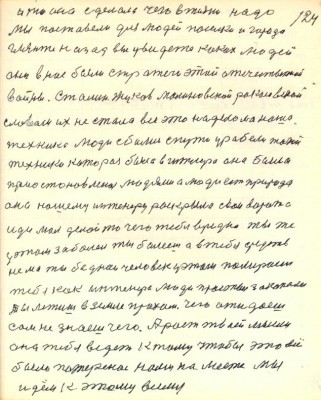 и то она сделала чего в жизни надо
124
мы поставели для людей только и города
гляните назад вы увидете каких людей
они в нас были стратеги этой отечественной
войны. Сталин Жуков Малиновской рокасовской
словом их не стала все это наделала наша
техника люди сбили с пути и рабели такой
техники которая была в ... она была
приостоновлена людями а люди ест природа
она нашему инженеру раскрыла свои ворота
иди мол делой то чего тебя вредна ты же
утром заболеи ты болееш а в тебя средств
нема ты бедная человек утром помираеш
тебя как инженера люди просты закопали
вы лежите в земле прахом. чего ожидаеш
сам не знаеш чего. А рост твоей мысли
она тебя ведеть к тому чтобы это всё
было потеряное нами на месте мы
идём к этому всему